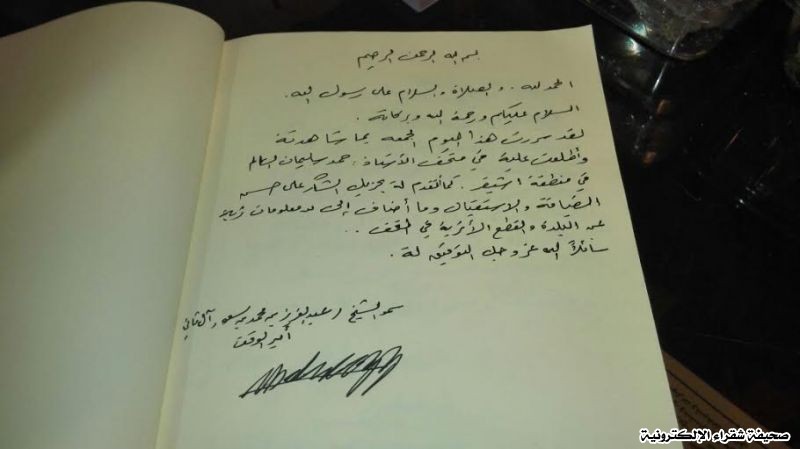 بسم الله الرحمن الرحيم
الحمد لله . والصلاة والسلام على رسول الله .
السلام عليكم ورحمة الله وبركاتة .
لقد سررت هذا اليوم الجمعه بما شاهدتة
وأطلعت علية في متحف الأستاذ : حمد سليمان السالم
في منطقة اشيقر . كما أتقدم لة بجزيل الشكر على حسن
الضيافة والاستقبال وما أضاف إلى من معلومات
عن البلدة والقطع الأثرية في المتحف . .
سائلاً الله عز وجل التوفيق لة .
سمو الشيخ / عبدالعزيز بن محمد بن سعود آل ثاني
صحيفة شقراء الإلكترونية